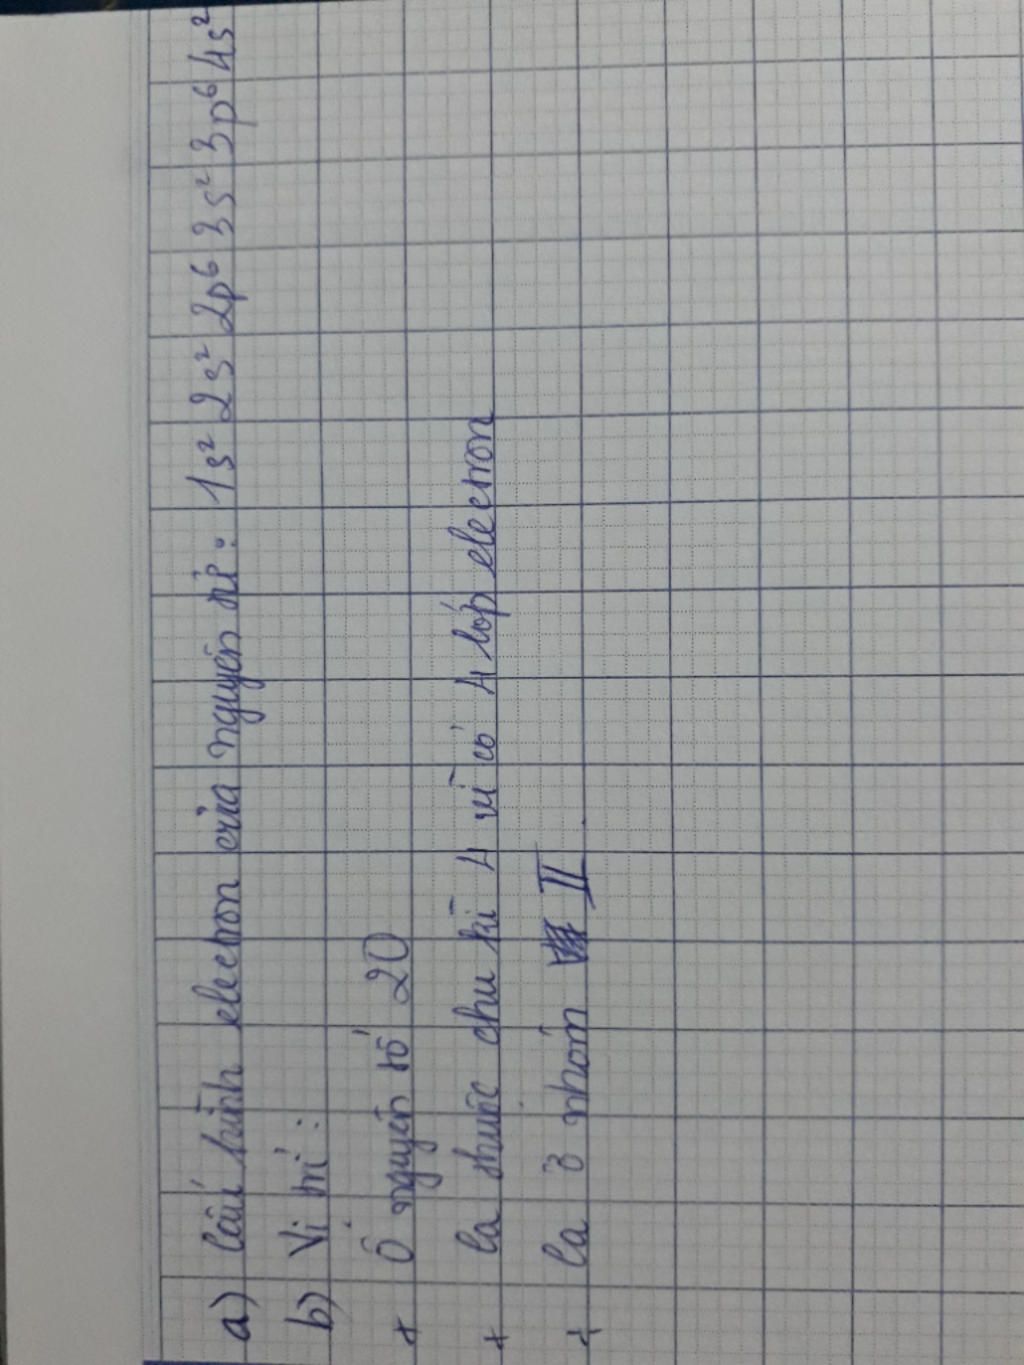 a) Cấu hình electron của nguyên tử: 1s² 2s² 2p⁶ 3s² 3p⁶ 4s²
b) Vị trí:
+ Ô nguyên tố 20
+ Ca thuộc chu kì 4 vì có 4 lớp electron
+ Ca ở nhóm II